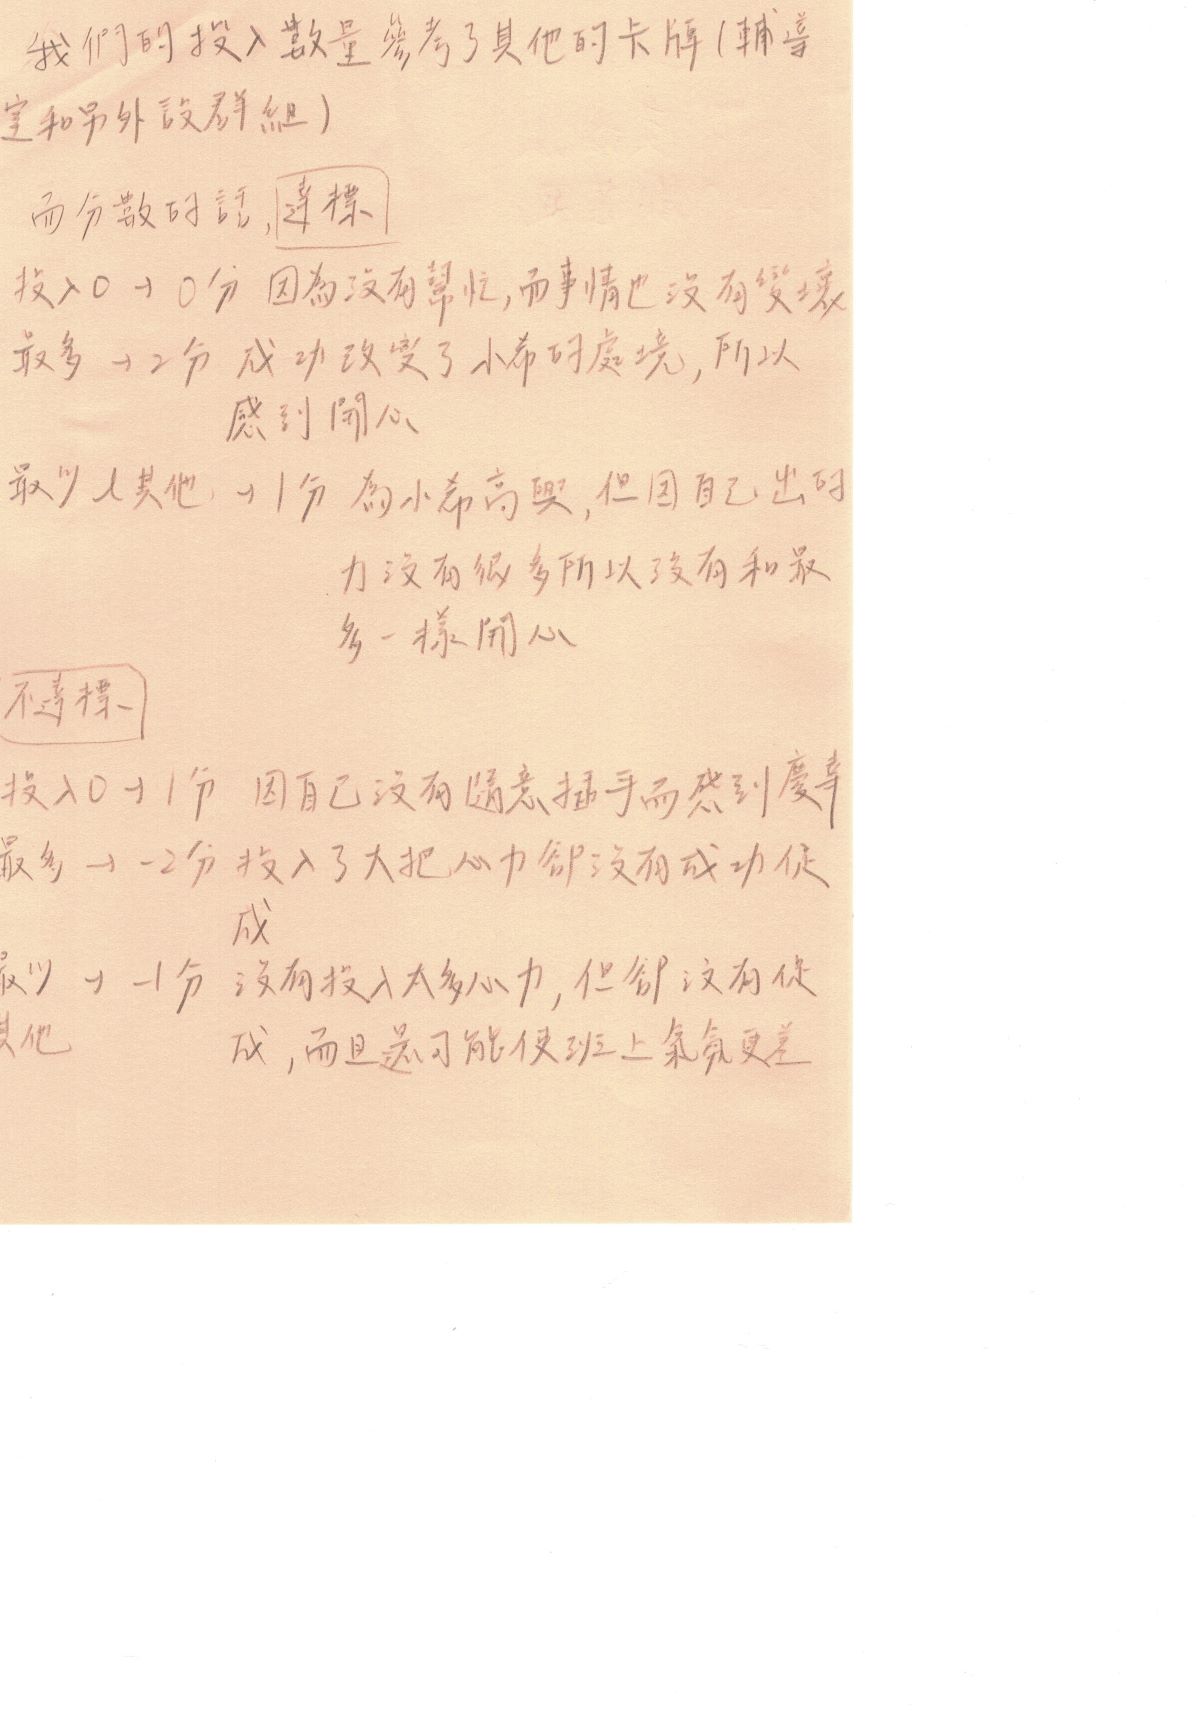 我們的投入數量參考了其他的卡牌(輔導
室和另外設群組)
而分散的話,達標
投入0→0分 因為沒有幫忙,而事情也沒有變壞
最多→2分 成功改變了小希的處境,所以
感到開心
最少、其他→1分 為小希高興,但因自己出的
力沒有很多所以沒有和最
多一樣開心
不達標
投入0→1分 因自己沒有隨意插手而感到慶幸
最多→-2分 投入了大把心力卻沒有成功促
成
最少→-1分 沒有投入太多心力,但卻沒有促
其他 成,而且還可能使班上氣氛更差